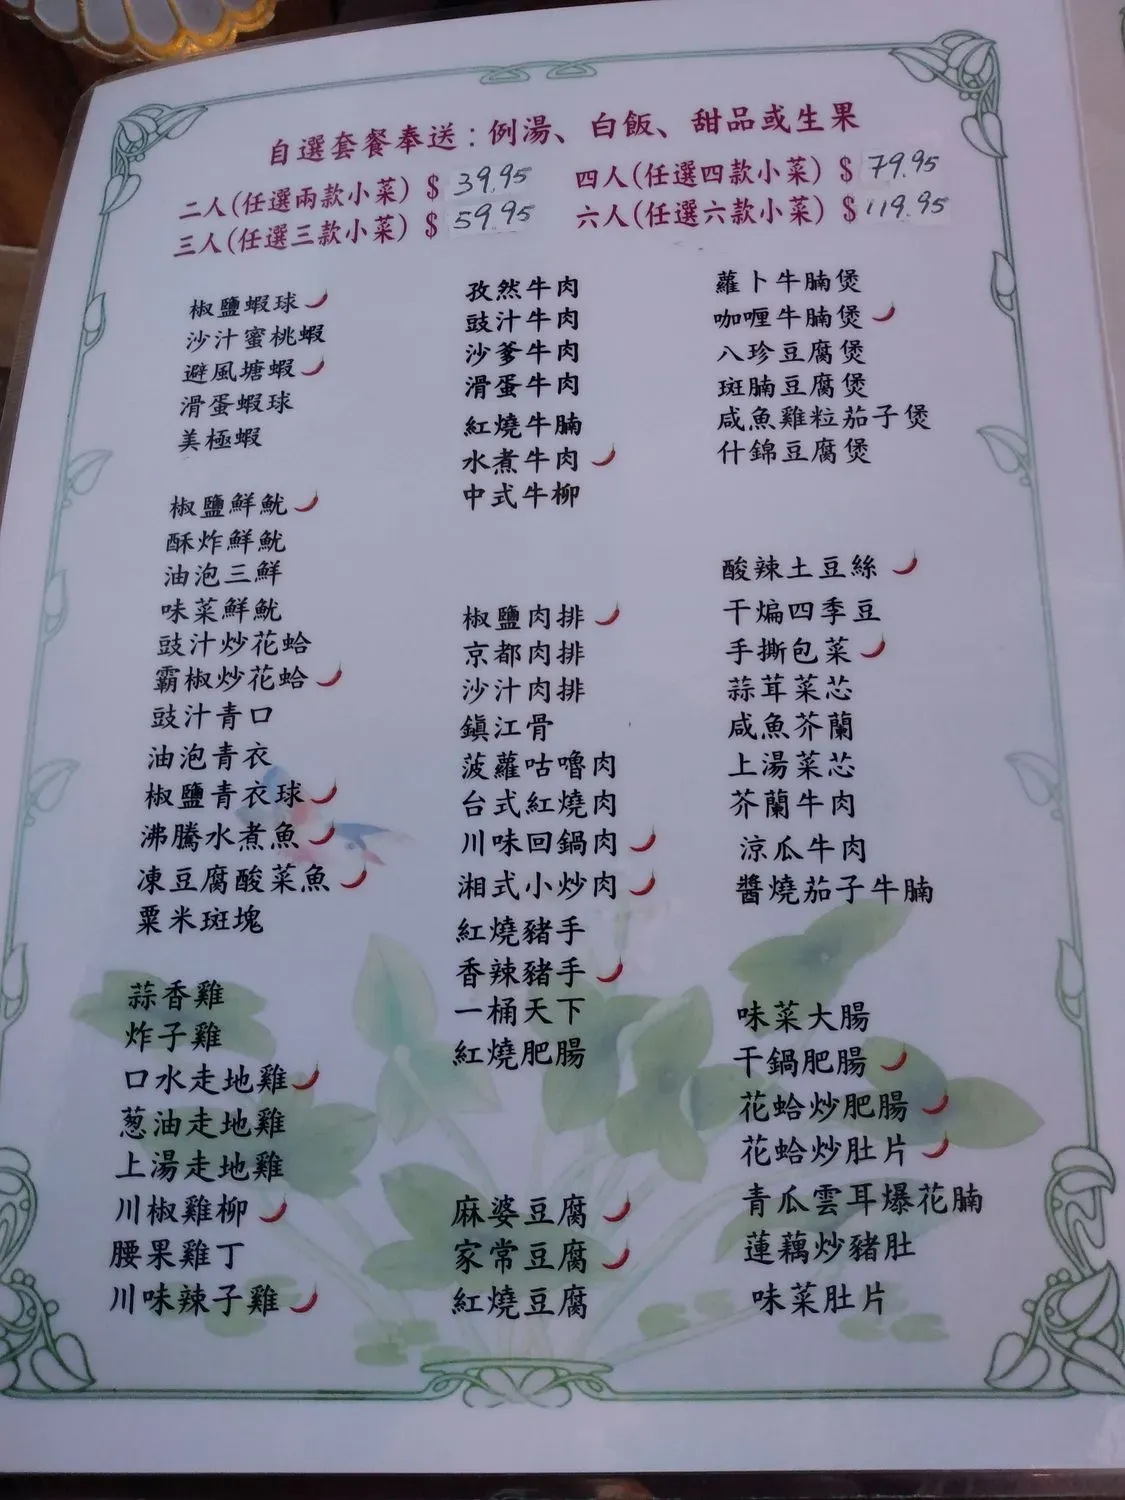 自選套餐奉送：例湯、白飯、甜品或生果
二人(任選兩款小菜) $ 39.95
四人(任選四款小菜) $ 79.95
三人(任選三款小菜) $ 59.95
六人(任選六款小菜) $ 119.95
椒鹽蝦球
沙汁蜜桃蝦
避風塘蝦
滑蛋蝦球
美極蝦
椒鹽鮮魷
酥炸鮮魷
油泡三鮮
味菜鮮魷
豉汁炒花蛤
霸椒炒花蛤
豉汁青口
油泡青衣
椒鹽青衣球
沸騰水煮魚
凍豆腐酸菜魚
粟米斑塊
蒜香雞
炸子雞
口水走地雞
葱油走地雞
上湯走地雞
川椒雞柳
腰果雞丁
川味辣子雞
孜然牛肉
豉汁牛肉
沙爹牛肉
滑蛋牛肉
紅燒牛腩
水煮牛肉
中式牛柳
椒鹽肉排
京都肉排
沙汁肉排
鎮江骨
菠蘿咕嚕肉
台式紅燒肉
川味回鍋肉
湘式小炒肉
紅燒豬手
香辣豬手
一桶天下
紅燒肥腸
麻婆豆腐
家常豆腐
紅燒豆腐
蘿卜牛腩煲
咖喱牛腩煲
八珍豆腐煲
斑腩豆腐煲
咸魚雞粒茄子煲
什錦豆腐煲
酸辣土豆絲
干煸四季豆
手撕包菜
蒜茸菜芯
咸魚芥蘭
上湯菜芯
芥蘭牛肉
涼瓜牛肉
醬燒茄子牛腩
味菜大腸
干鍋肥腸
花蛤炒肥腸
花蛤炒肚片
青瓜雲耳爆花腩
蓮藕炒豬肚
味菜肚片